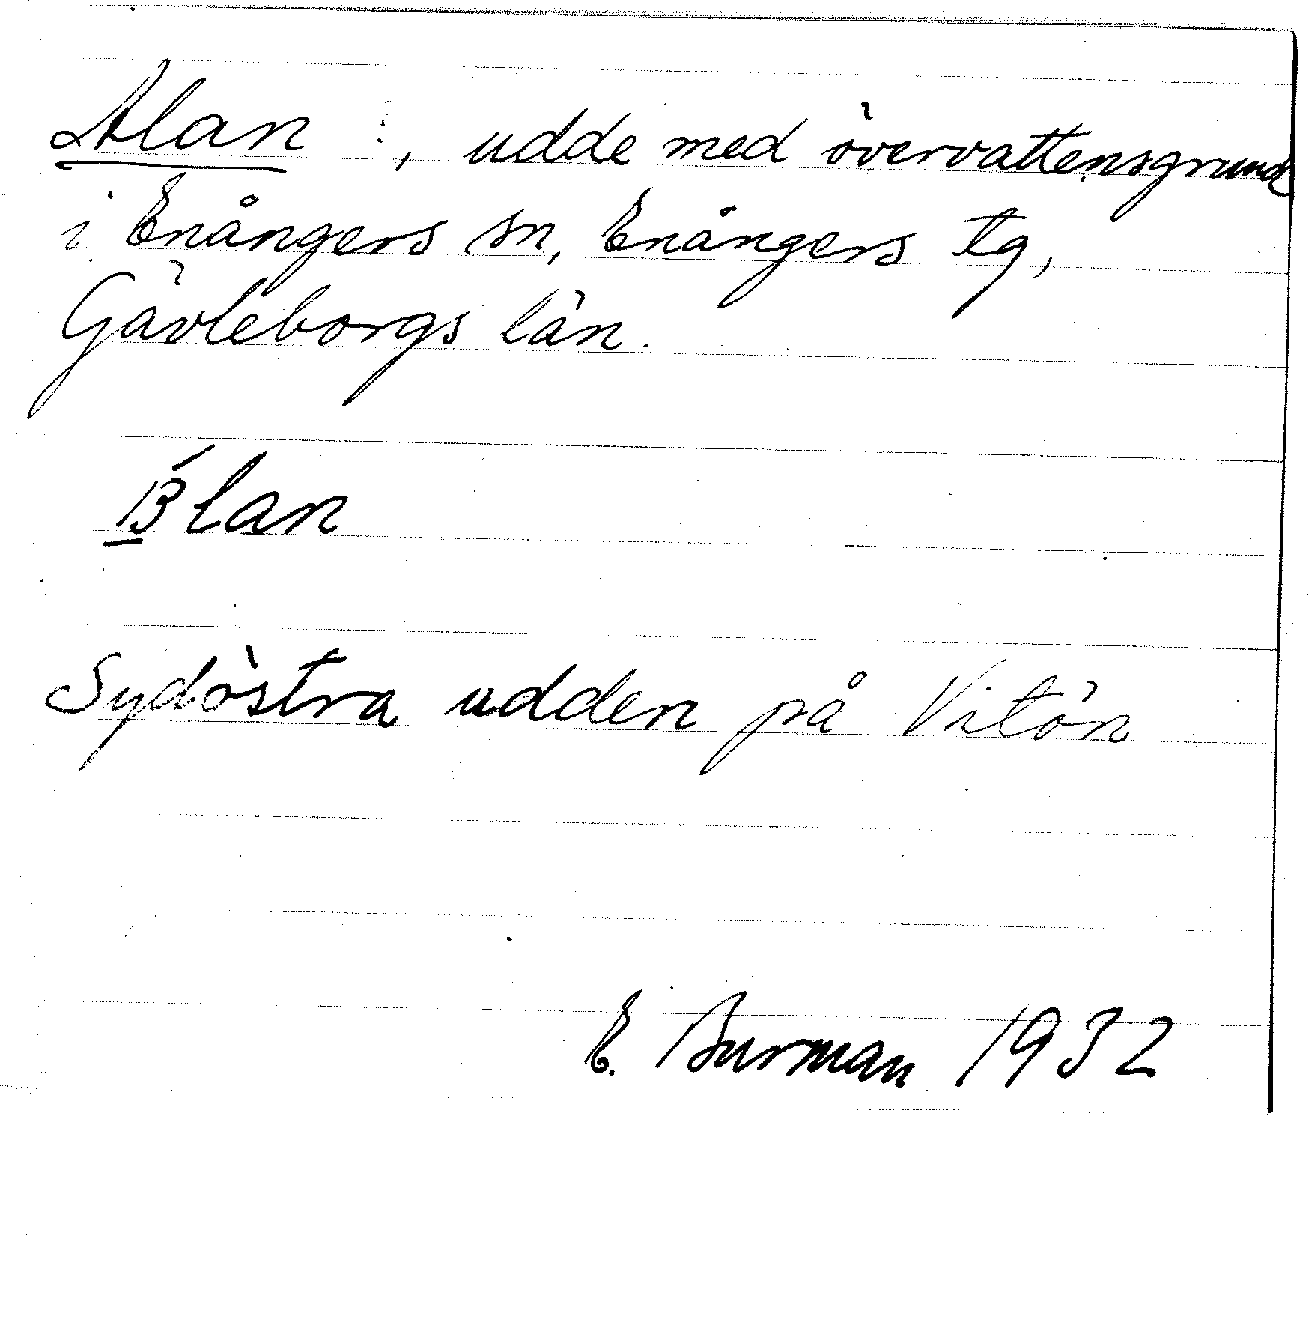 Alan :, udde med övervattensgrund
i Enångers sn, Enångers tg,
Gävleborgs län.
lan
Sydöstra udden på Vitön
E. Burman 1932